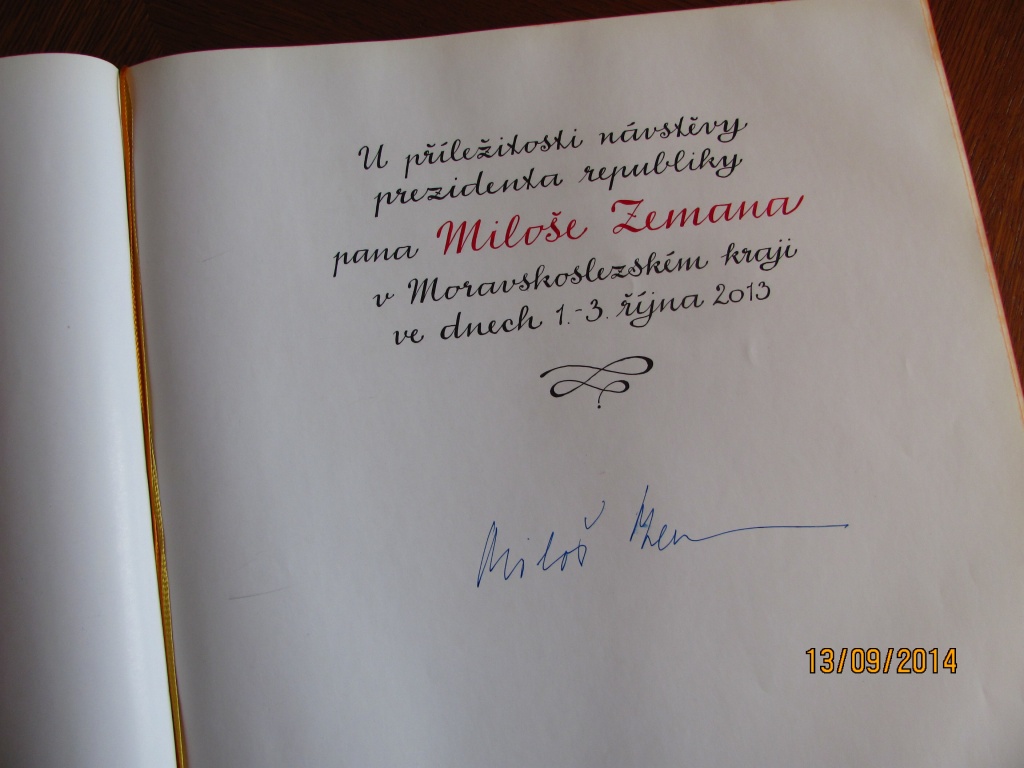 U příležitosti návstěvy
prezidenta republiky
pana Miloše Zemana
v Moravskoslezském kraji
ve dnech 1.-3. října 2013
Miloš Zeman
13/09/2014